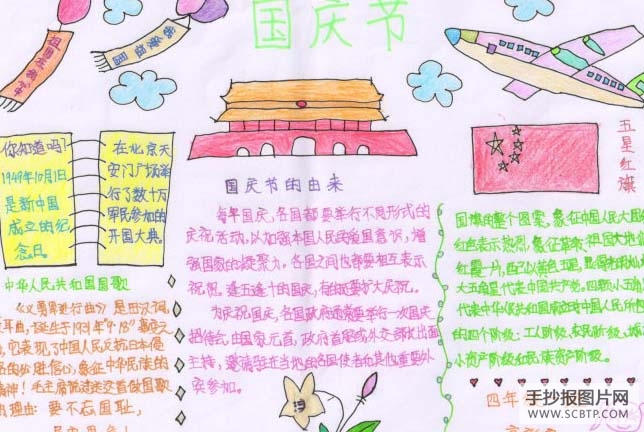 国庆节
祖国在我心中
我爱祖国
你知道吗?
1949年10月1日
是新中国
成立的纪
念日。
在北京天
安门广场举
行了数十万
军民参加的
开国大典。
五星红旗
国庆节的由来
每年国庆,各国都要举行不同形式的
庆祝活动,以加强本国人民的爱国意识,增
强国家的凝聚力。各国之间也都要相互表示
祝贺。逢五逢十的国庆,有的还要扩大庆祝。
为庆祝国庆,各国政府通常要举行一次国庆
招待会,由国家元首、政府首脑或外交部长出面
主持,邀请驻在当地的各国使者和其他重要外
宾参加。
中华人民共和国国歌
《义勇军进行曲》是田汉词,
耳曲,诞生于1931年“9·18”
它表现了中国人民反抗日本侵
的必胜信心,象征中华民族的
精神!毛主席说
要不忘国耻,
国旗的整个图案,象征中国人民大团
红色表示热烈,象征革命,祖国大地
红霞一片,
大五角星代表中国共产党,四颗小五角星
代表中华人民共和国成立时
的四个阶级:工人阶级、农民阶级、
小资产阶级和民族资产阶级。
四年
手抄报图片网
WWW.SCBTP.COM